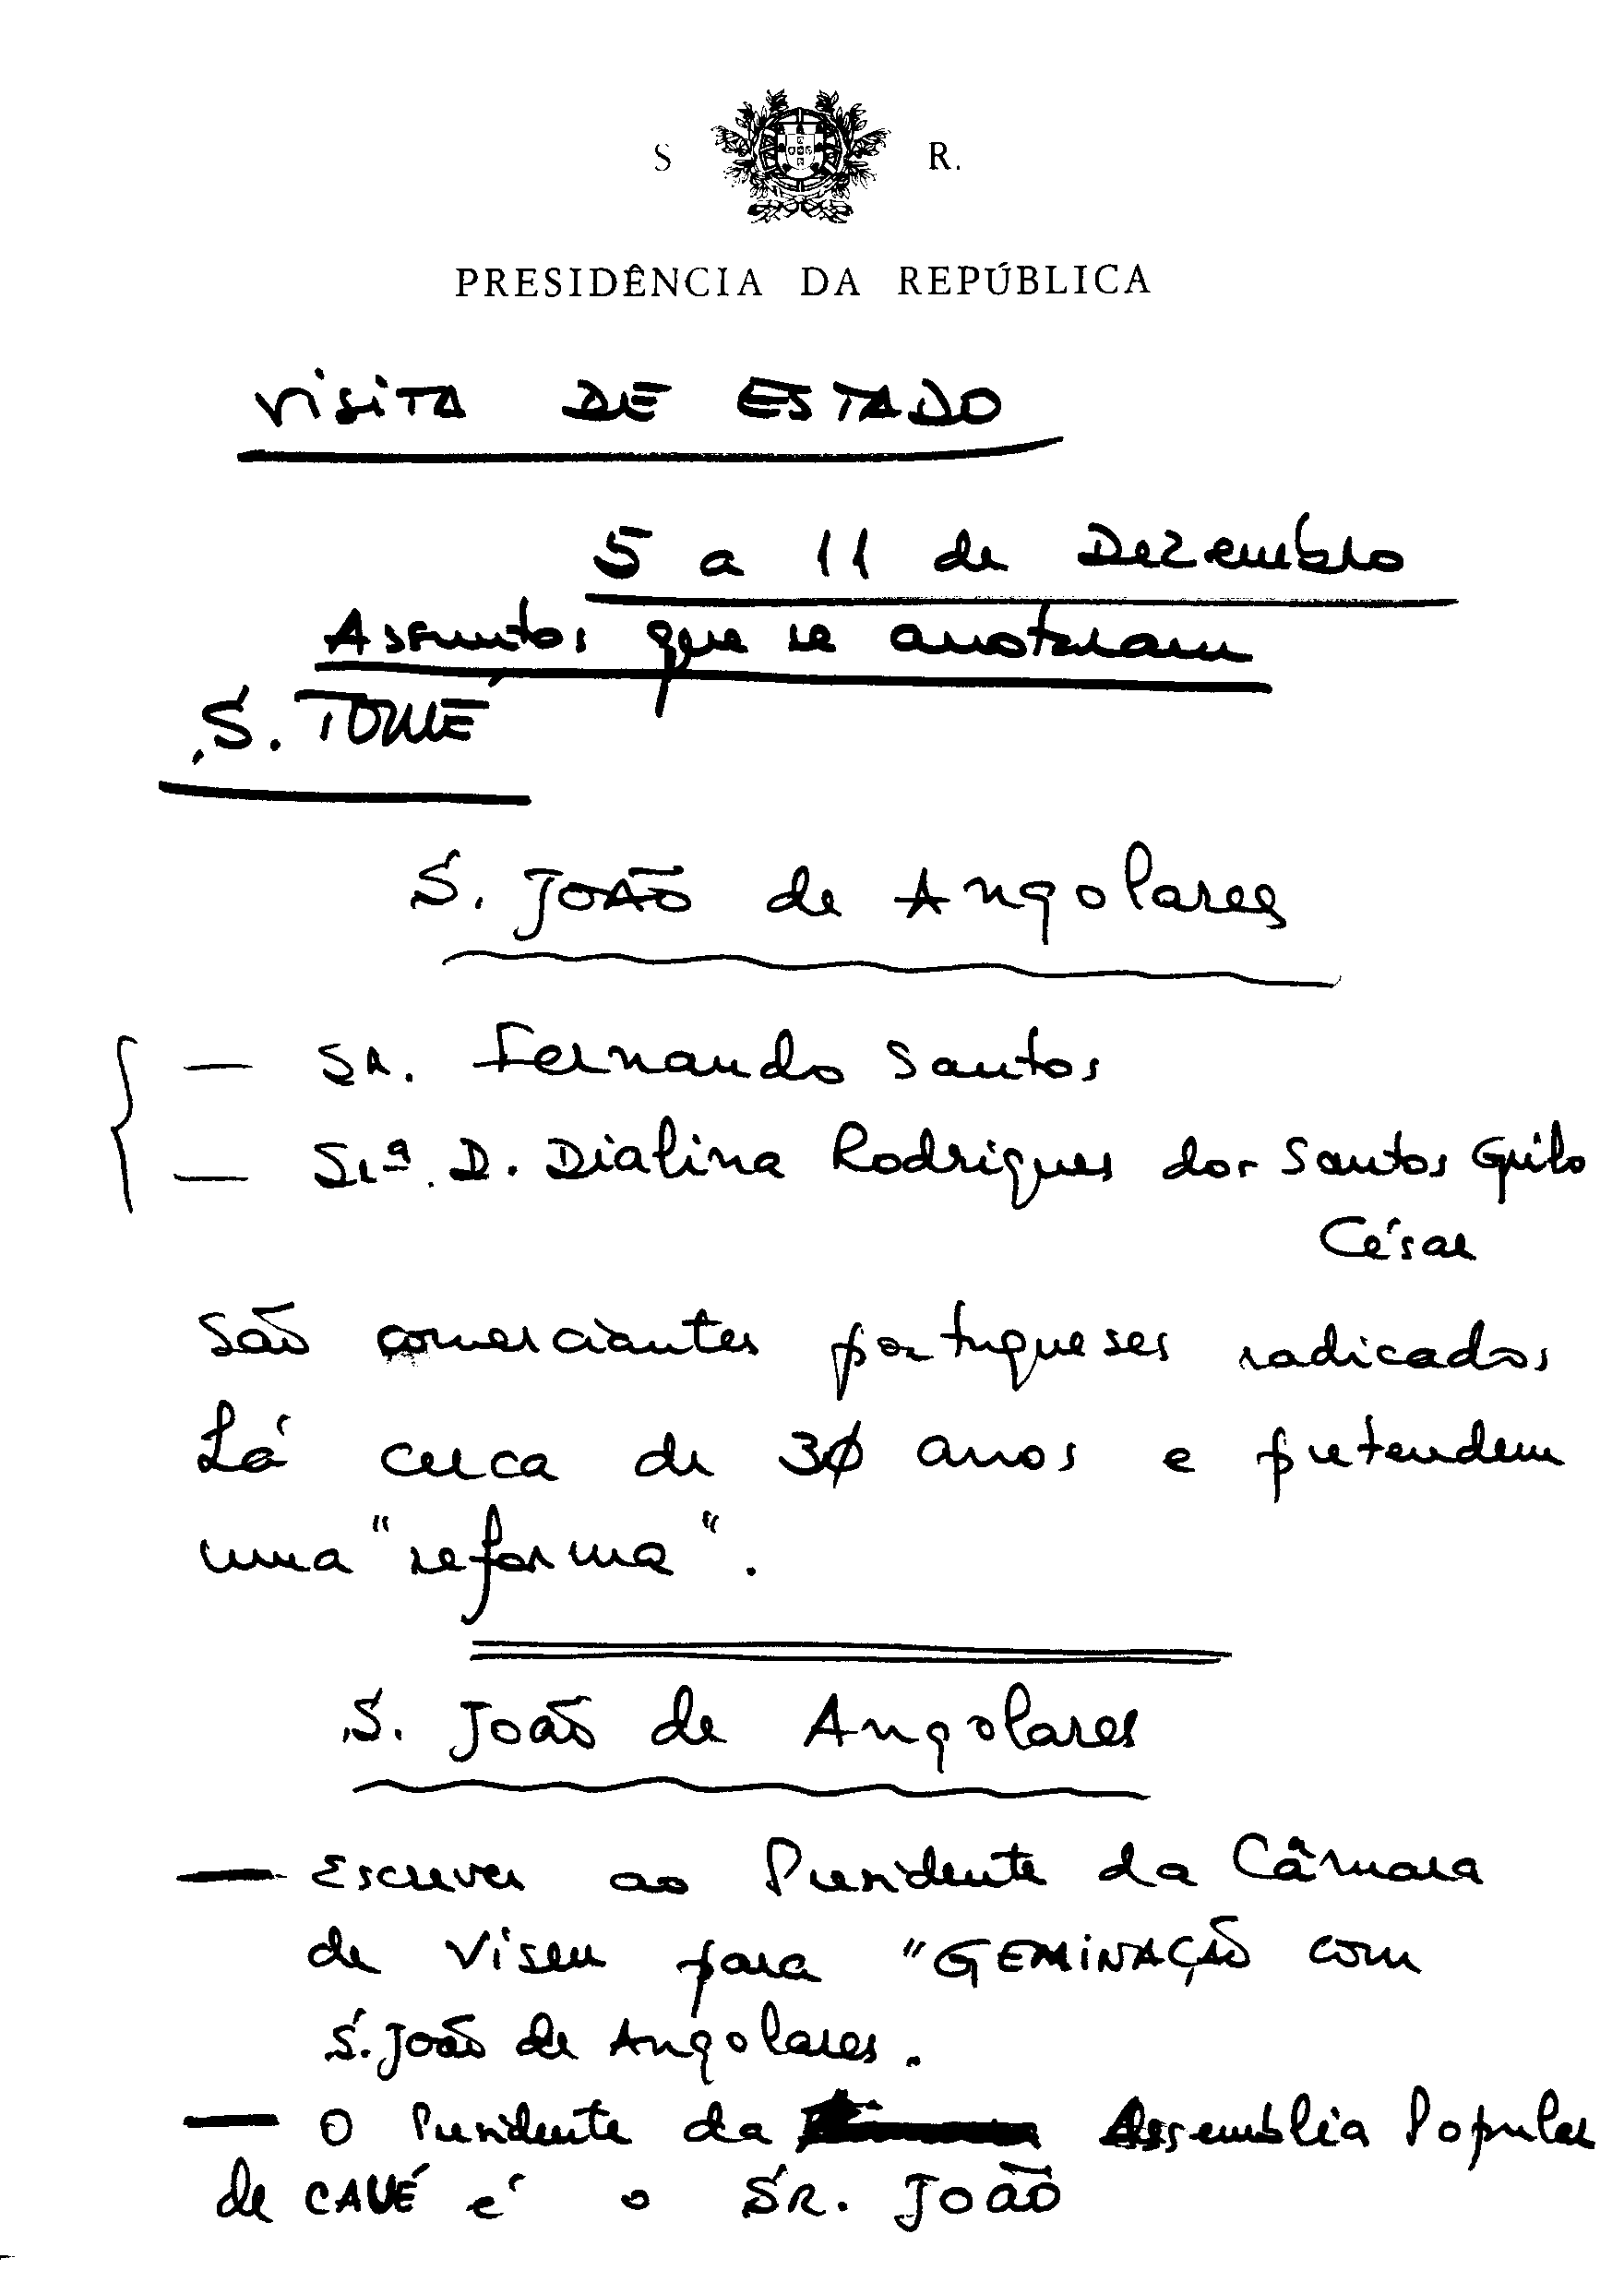 S R.
PRESIDÊNCIA DA REPÚBLICA
VISITA DE ESTADO
5 a 11 de Dezembro
Assuntos que se anotaram
S. TOMÉ
S. JOÃO de Angolares
— Sr. Fernando Santos
— Srª. D. Dialina Rodrigues dos Santos
César
São comerciantes portugueses radicados
Lá cerca de 30 anos e pretendem
uma "reforma".
S. João de Angolares
— Escrever ao Presidente da Câmara
de Viseu para "GEMINAÇÃO com
S. João de Angolares.
— O Presidente da Assemblia Popular
de CAUÉ é o SR. JOÃO